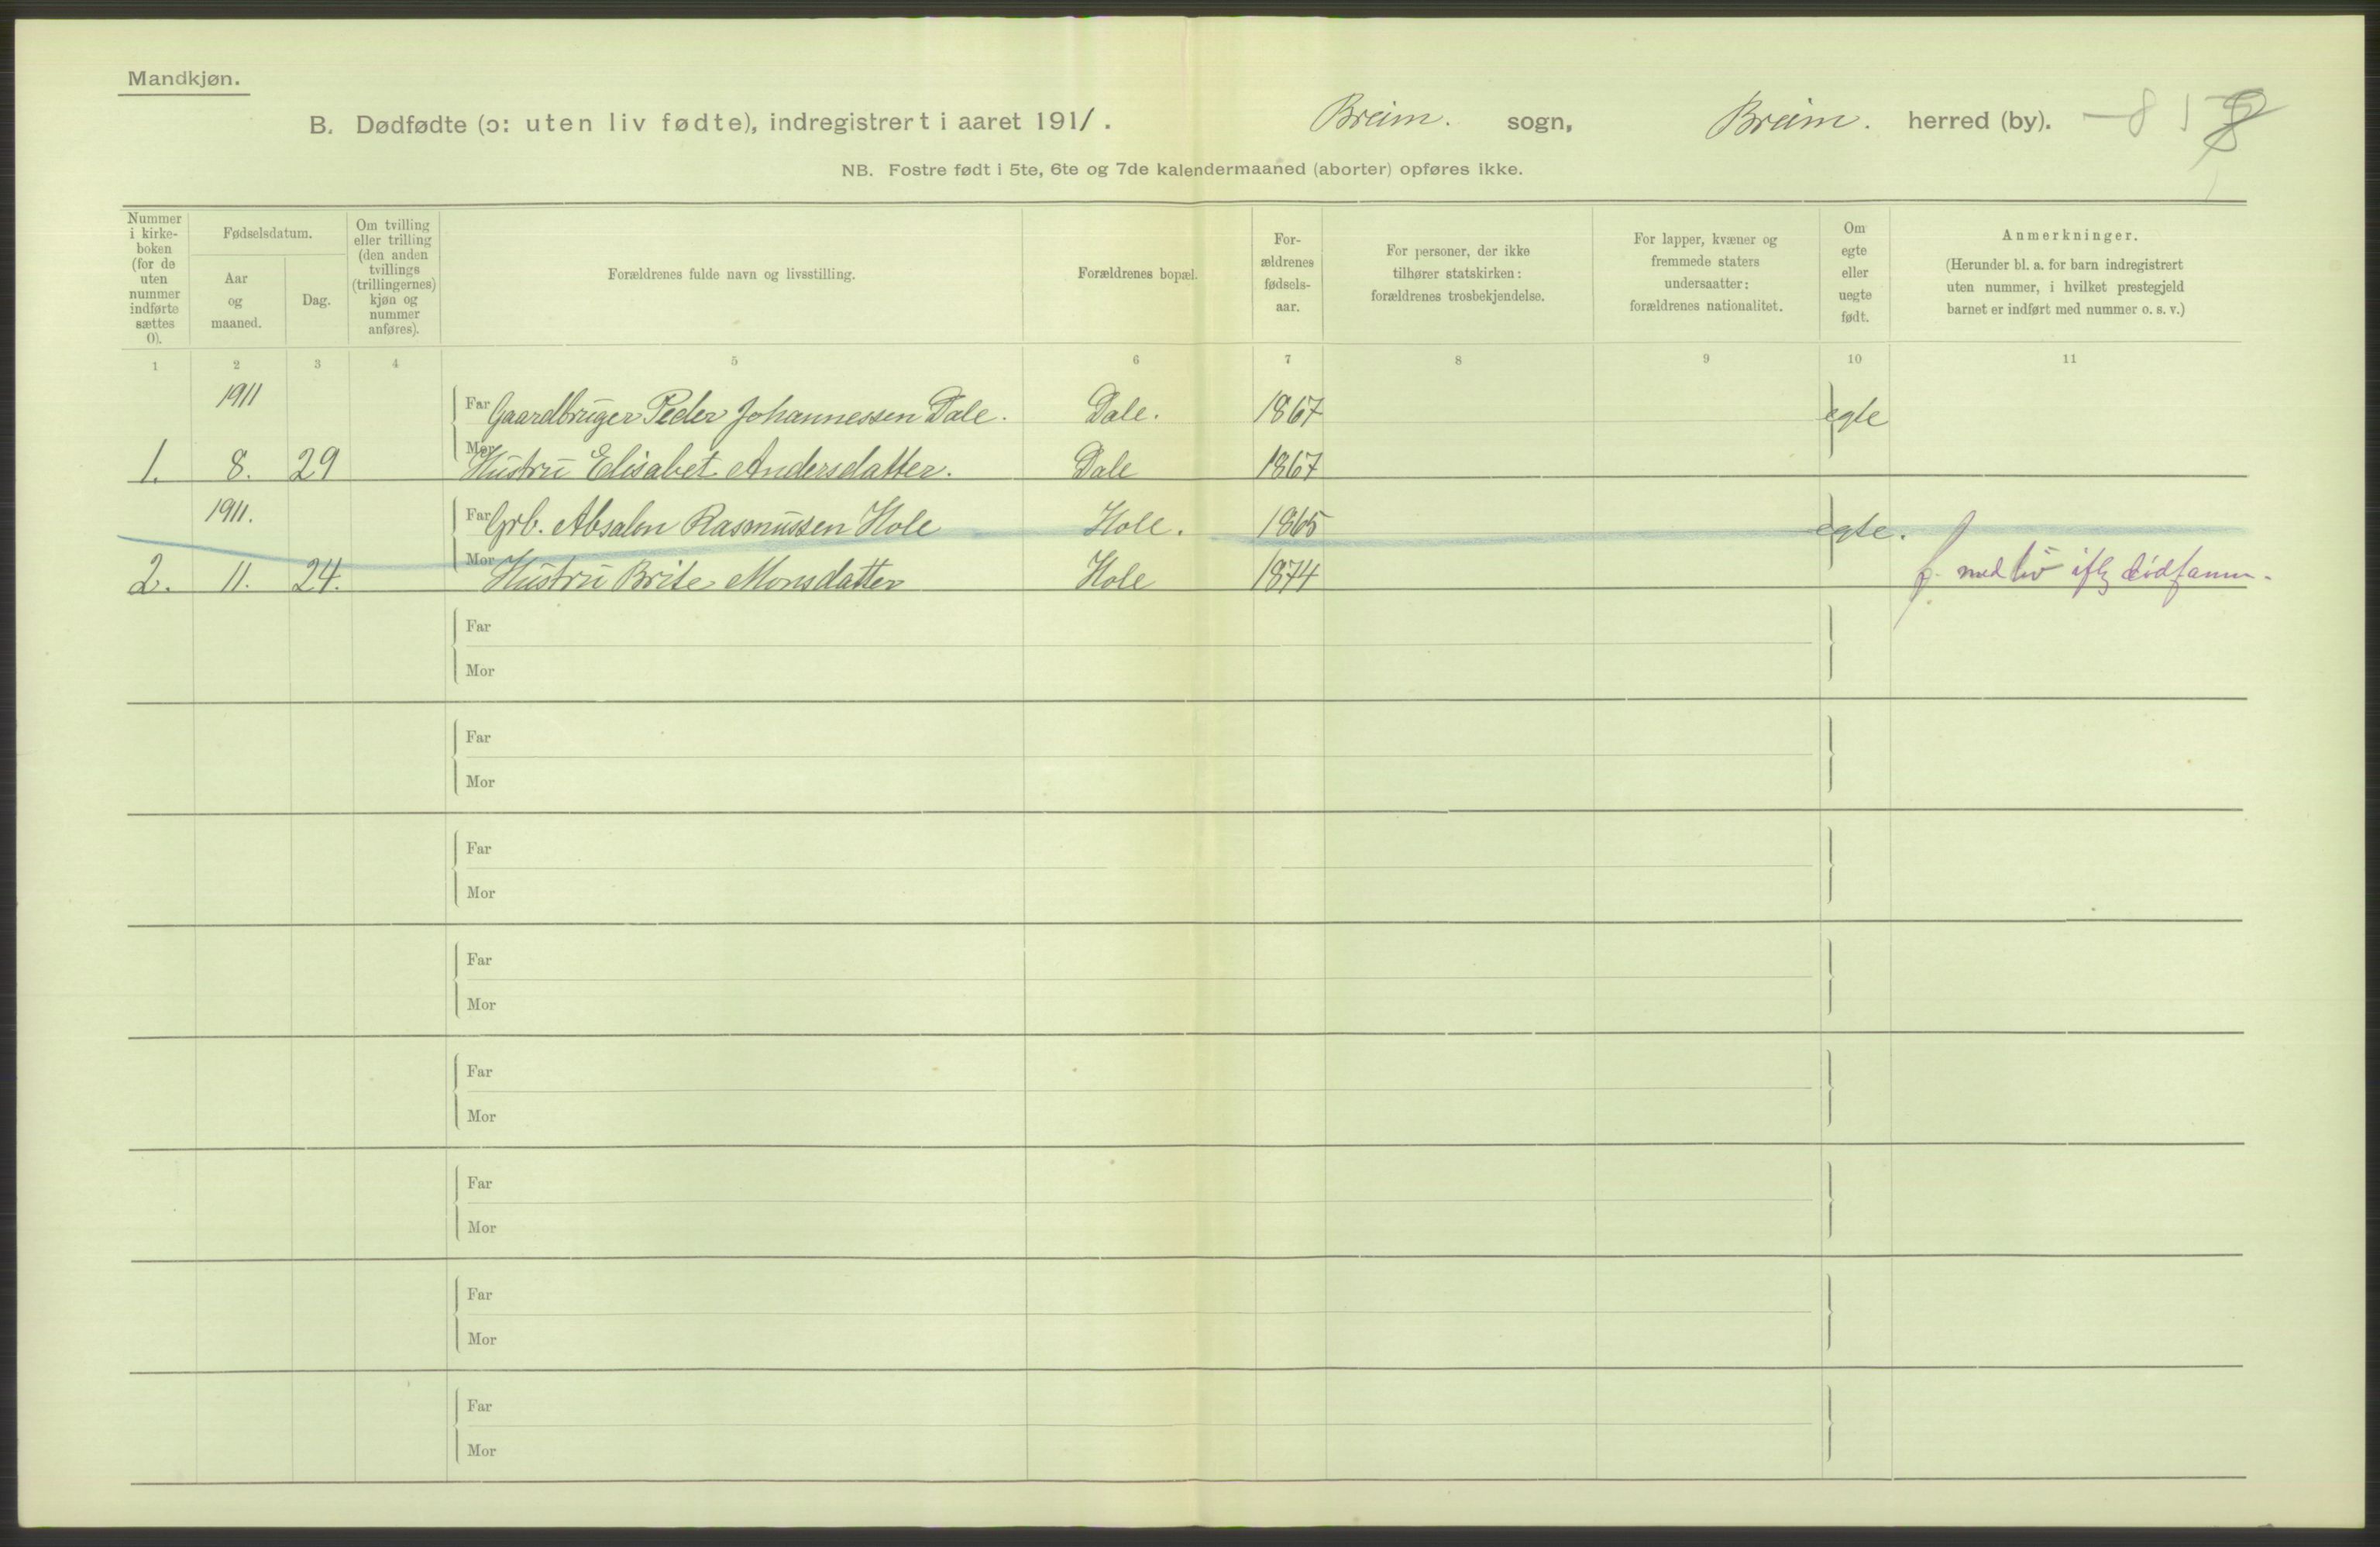 Mandkjøn.
B. Dødfødte (ɔ: uten liv fødte), indregistrert i aaret 1911. Breim. sogn, Breim. herred (by).
NB. Fostre født i 5te, 6te og 7de kalendermaaned (aborter) opføres ikke.
Nummer i kirke-boken (for de uten nummer indførte sættes 0).
Fødselsdatum.
Aar og maaned.
Dag.
Om tvilling eller trilling (den anden tvillings (trillingernes) kjøn og nummer anføres).
Forældrenes fulde navn og livsstilling.
Forældrenes bopæl.
For-ældrenes fødsels-aar.
For personer, der ikke tilhører statskirken: forældrenes trosbekjendelse.
For lapper, kvæner og fremmede staters undersaatter: forældrenes nationalitet.
Om egte eller uegte født.
Anmerkninger.
(Herunder bl. a. for barn indregistrert uten nummer, i hvilket prestegjeld barnet er indført med nummer o. s. v.)
1 2 3 4 5 6 7 8 9 10 11
1911 Far Gaardbruger Peder Johannessen Dale. Dale. 1867 egte
1. 8. 29 Mor Hustru Elisabet Andersdatter. Dale 1867
1911. Far Grb. Absalon Rasmussen Hole Hole. 1865 egte.
2. 11. 24. Mor Hustru Brite Monsdatter Hole 1874 f. med liv iflg
Far
Mor
Far
Mor
Far
Mor
Far
Mor
Far
Mor
Far
Mor
Far
Mor
Far
Mor